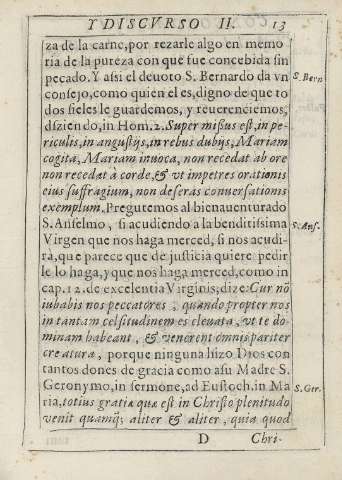 Y DISCVRSO II. 13
za de la carne, por rezarle algo en memo
ria de la pureza con que fue concebida sin
pecado. Y assi el deuoto S. Bernardo da vn
S. Bern
consejo, como quien el es, digno de que to
dos fieles le guardemos, y reuerenciemos,
diziendo, in Hom. 2. Super missus est, in pe-
riculis, in angustijs, in rebus dubijs, Mariam
cogita, Mariam inuoca, non recedat ab ore
non recedat à corde, & vt impetres orationis
eius suffragium, non deseras conuersationis
exemplum. Preguntemos al bienauenturado
S. Anselmo, si acudiendo a la benditissima
S. Ans.
Virgen que nos haga merced, si nos acudi-
rà, que parece que de justicia quiere pedir
le lo haga, y que nos haga merced, como in
cap. 12. de excelentia Virginis, dize: Cur nō
iubabis nos peccatores, quando propter nos
in tantam celsitudinem es eleuata, vt te do-
minam habeant, & venerent omnis pariter
creatura, porque ninguna hizo Dios con
tantos dones de gracia como a su Madre S.
Geronymo, in sermone, ad Eustoch. in Ma
S. Ger.
ria, totius gratiæ quæ est in Christo plenitudo
venit quamq; aliter & aliter, quia quod
D Chri-